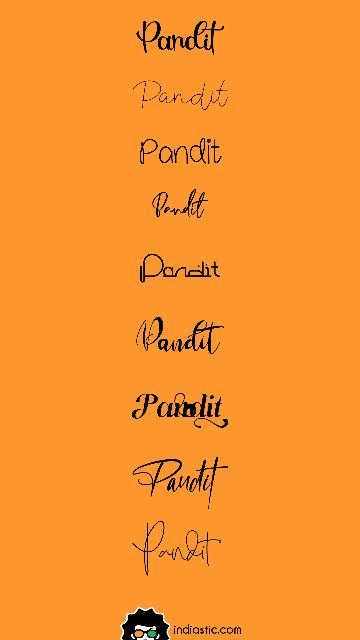 Pandit
Pandit
Pandit
Pandit
Pandit
Pandit
Pandit
Pandit
Pandit
indiastic.com